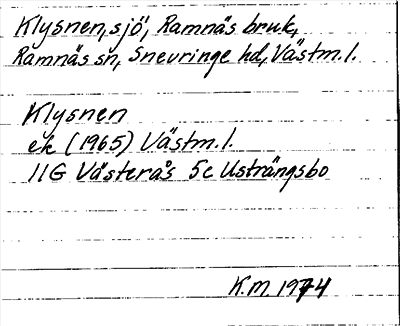 Klysnen, sjö, Ramnäs bruk,
Ramnäs sn, Snevringe hd, Västm.l.
Klysnen
ek (1965) Västm.l.
11G Västerås 5c Usträngsbo
K.M. 1974